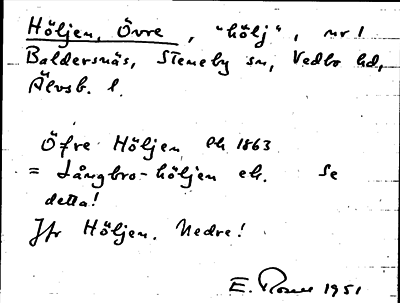 Höljen, Övre, "hölj", nr 1
Baldersnäs, Steneby sn, Vedbo hd,
Älvsb. l.
Öfre Höljen Ek 1863
= Långbro-höljen ek. Se
detta!
Jfr Höljen. Nedre!
E. 1951